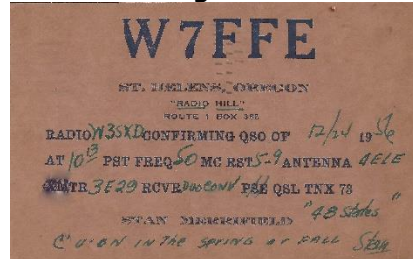 W7FFE
ST. HELENS, OREGON
"RADIO HILL"
ROUTE 1 BOX
RADIO W3SXD CONFIRMING QSO OF 12/24 1956
AT 10 PST FREQ 50 MC RST 5-9 ANTENNA 4ELE
XMTR 3E29 RCVR PSE QSL TNX 73
"48 States"
STAN MERRIFIELD
C U ON IN THE SPRING OR FALL Stan